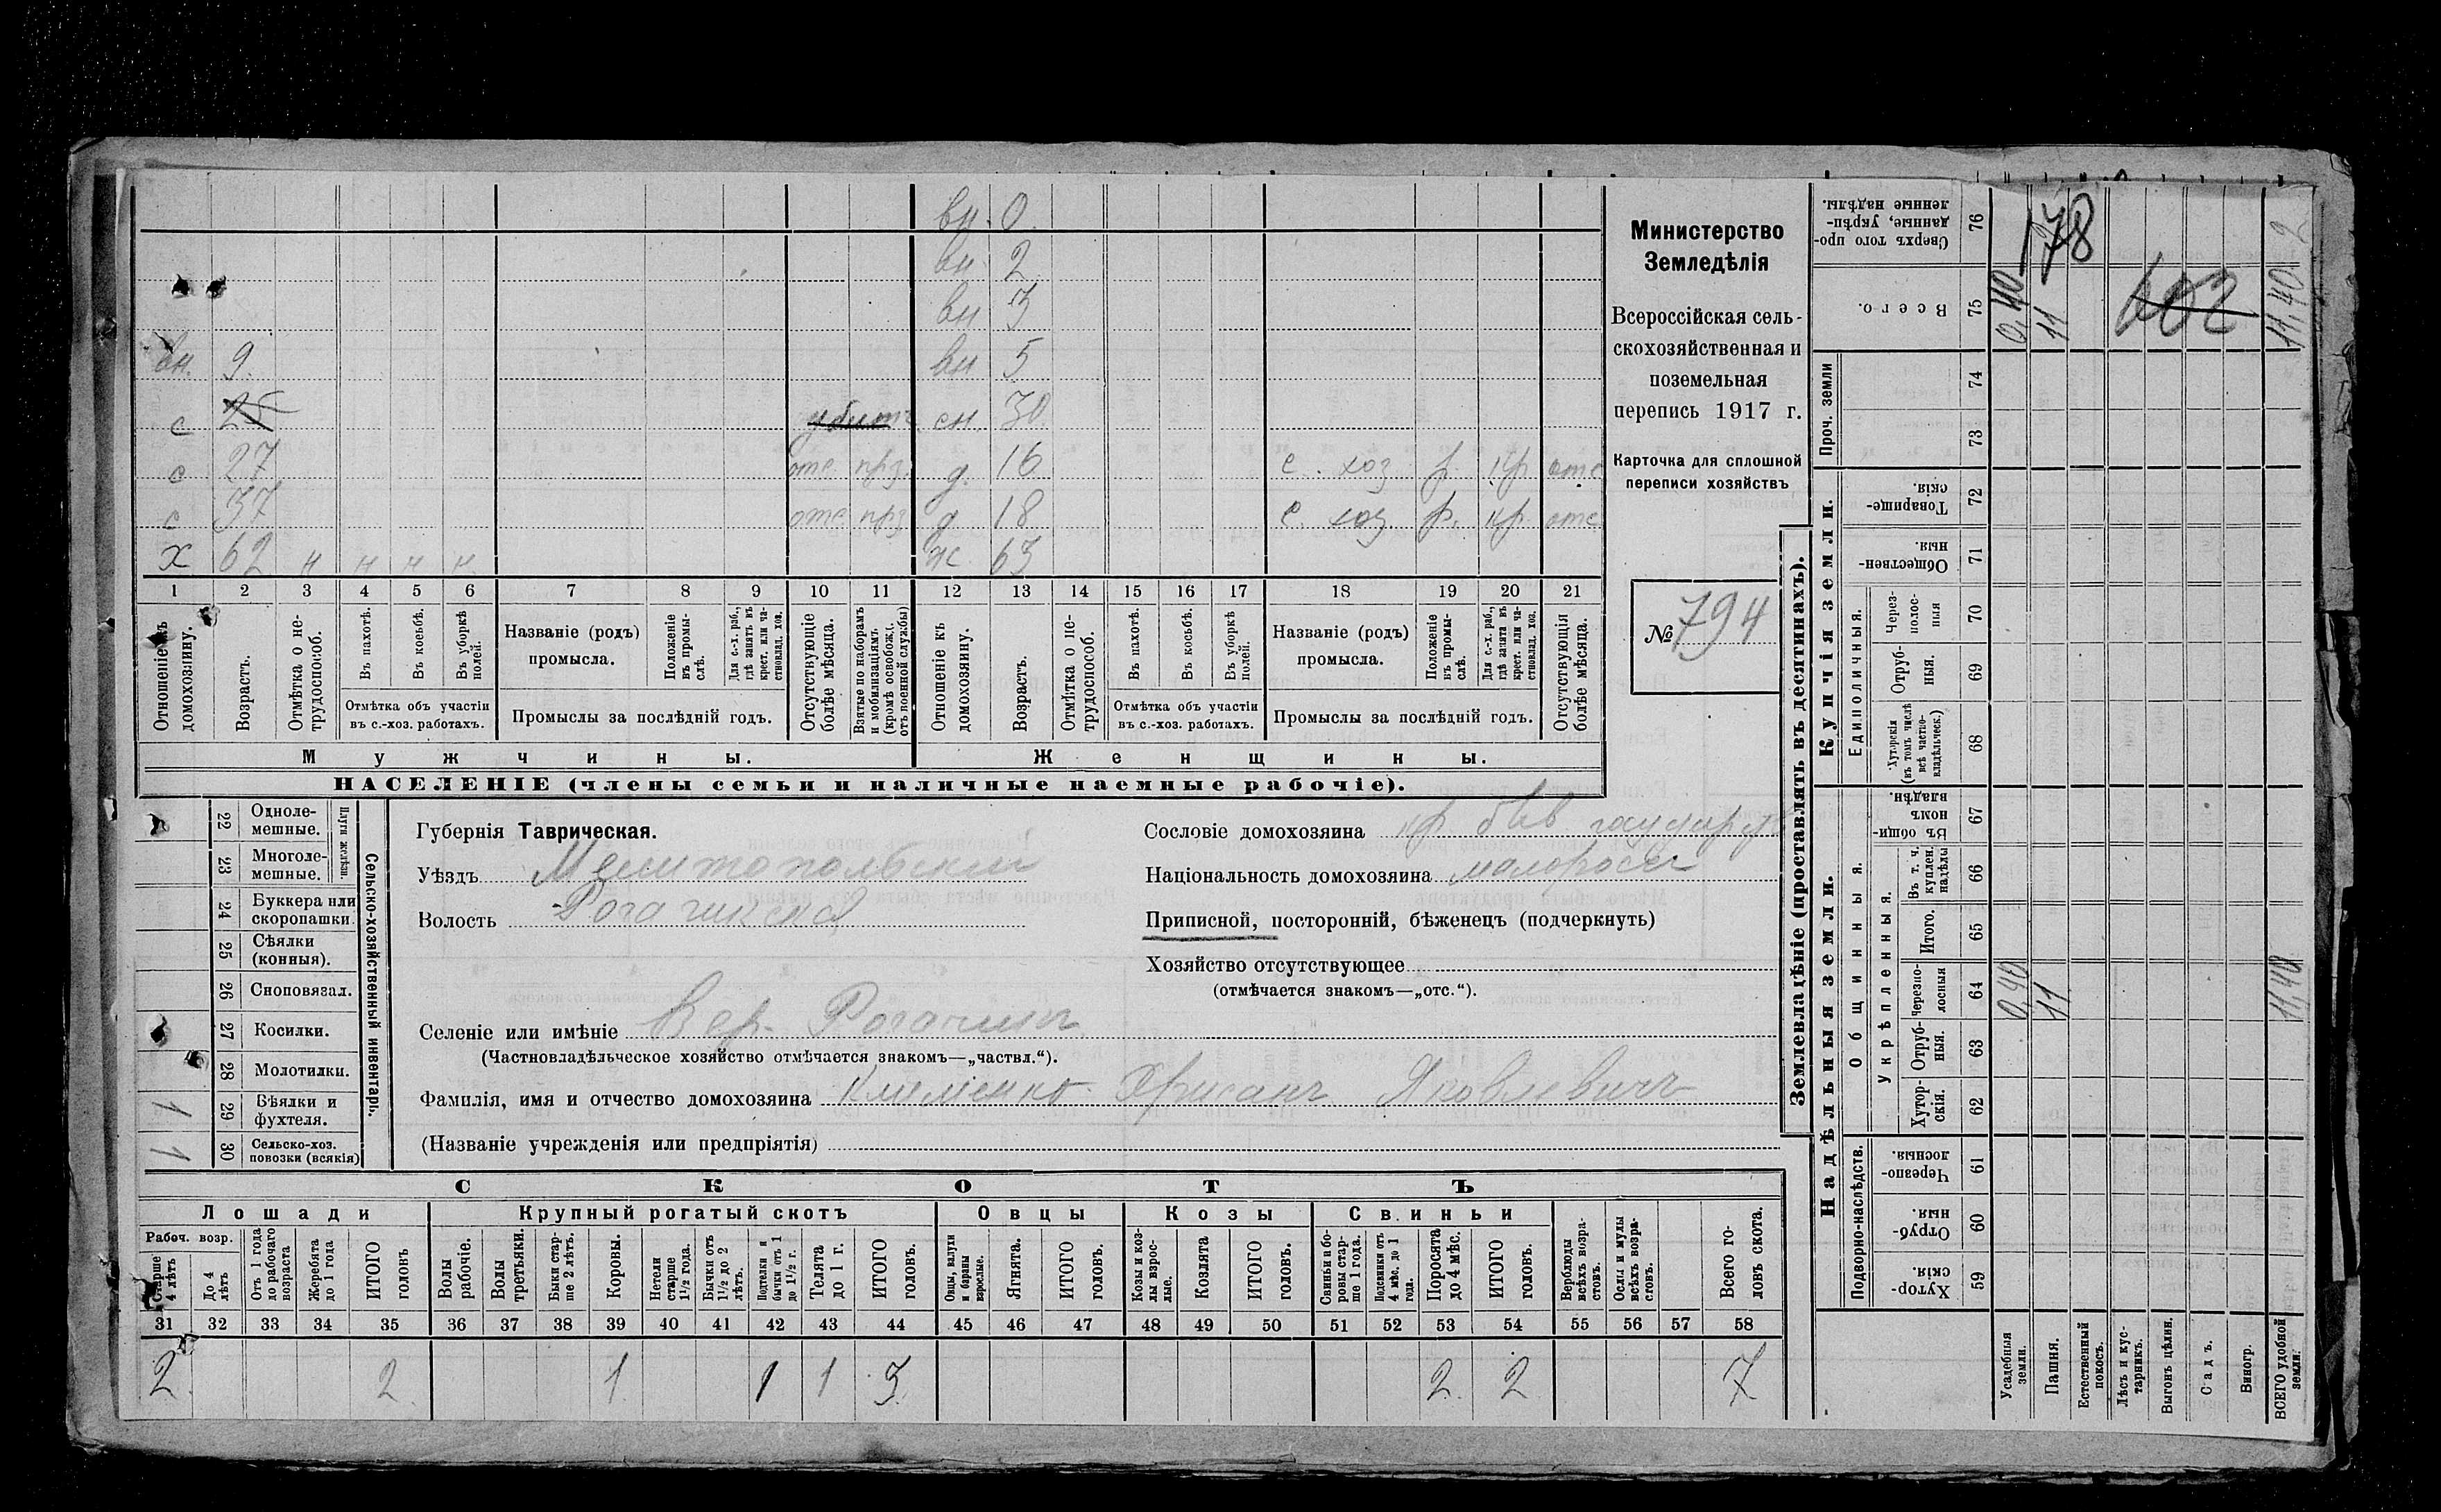 вн. 0
вн. 2
вн 3
вн. 9. вн 5
с 25 убитъ сн 30
с 27 отс прз. д. 16 с. хоз р. кр отс
с 37 отс прз д 18 с. хоз. р. кр. отс
х 62 н н н н. ж. 63
1 2 3 4 5 6 7 8 9 10 11 12 13 14 15 16 17 18 19 20 21
Отношеніе къ домохозяину.
Возрастъ.
Отмѣтка о не-
трудоспособ.
Въ пахотѣ.
Въ косьбѣ.
Въ уборкѣ
полей.
Отмѣтка объ участіи
въ с.-хоз. работахъ.
Названіе (родъ)
промысла.
Положеніе
въ промы-
слѣ.
Для с.-х. раб.,
гдѣ занятъ въ
крест. или ча-
стновлад. хоз.
Промыслы за послѣдній годъ.
Отсутствующіе
болѣе мѣсяца.
Взятые по наборамъ
и мобилизаціямъ
(кромѣ освобож.
отъ военной службы)
Отношеніе къ
домохозяину.
Возрастъ.
Отмѣтка о не-
трудоспособ.
Въ пахотѣ.
Въ косьбѣ.
Въ уборкѣ
полей.
Отмѣтка объ участіи
въ с.-хоз. работахъ.
Названіе (родъ)
промысла.
Положеніе
въ промы-
слѣ.
Для с.-х. раб.,
гдѣ занята въ
крест. или ча-
стновлад. хоз.
Промыслы за послѣдній годъ.
Отсутствующія
болѣе мѣсяца.
Мужчины. Женщины.
НАСЕЛЕНІЕ (члены семьи и наличные наемные рабочіе).
Министерство
Земледѣлія
Всероссійская сель-
скохозяйственная и
поземельная
перепись 1917 г.
Карточка для сплошной
переписи хозяйствъ
№ 794
Сельско-хозяйственный инвентарь.
Плуги желѣзн.
22 Одноле-
мешные.
23 Многоле-
мешные.
24 Буккера или
скоропашки.
25 Сѣялки
(конныя).
26 Сноповязал.
27 Косилки.
28 Молотилки.
1 29 Вѣялки и
фухтеля.
1 30 Сельско-хоз.
повозки (всякія)
Губернія Таврическая.
Уѣздъ Мелитопольскій
Волость Рогачикская
Селеніе или имѣніе Вер. Рогачикъ
(Частновладѣльческое хозяйство отмѣчается знакомъ—„частвл.“).
Фамилія, имя и отчество домохозяина Клименко Хрисанъ Яковлевичъ
(Названіе учрежденія или предпріятія)
Сословіе домохозяина кр быв государств
Національность домохозяина малороссъ
Приписной, посторонній, бѣженецъ (подчеркнуть)
Хозяйство отсутствующее
(отмѣчается знакомъ—„отс.“).
СКОТЪ
Лошади Крупный рогатый скотъ Овцы Козы Свиньи
Рабоч. возр.
Старше
4 лѣтъ
До 4
лѣтъ
Отъ 1 года
до рабочаго
возраста
Жеребята
до 1 года
ИТОГО
головъ
Волы
рабочіе.
Волы
третьяки.
Быки стар-
ше 2 лѣтъ.
Коровы.
Нетели
старше
1½ года.
Бычки отъ
1½ до 2
лѣтъ.
Подтелки и
бычки отъ 1
до 1½ г.
Телята
до 1 г.
ИТОГО
головъ.
Овцы, валухи
и бараны
взрослые.
Ягнята.
ИТОГО
головъ.
Козы и коз-
лы взрос-
лые.
Козлята
ИТОГО
головъ.
Свиньи и бо-
ровы стар-
ше 1 года.
Подсвинки отъ
4 мѣс. до 1
года.
Поросята
до 4 мѣс.
ИТОГО
головъ.
Верблюды
всѣхъ возра-
стовъ.
Ослы и мулы
всѣхъ возра-
стовъ.
Всего го-
ловъ скота.
31 32 33 34 35 36 37 38 39 40 41 42 43 44 45 46 47 48 49 50 51 52 53 54 55 56 57 58
2 2 1 1 1 3 2 2 7
Землевладѣніе (проставлять въ десятинахъ).
Надѣльныя земли. Купчія земли.
Проч. земли
Сверхъ того про-
данные, укрѣп-
ленные надѣлы.
76 178 2
Всего.
75 0,40 11 602 11,40
74
73
Товарище-
скія.
72
Обществен-
ныя.
71
Единоличныя.
Через-
полос-
ныя
70
Отруб-
ныя.
69
Хуторскія
(въ томъ числѣ
всѣ частно-
владѣльческ.)
68
Общинныя.
Въ общи-
номъ
владѣн.
67
Укрѣпленныя.
Въ т. ч.
куплен.
надѣлы
66
Итого.
65
Черезпо-
лосныя
64 0,40 11 11,40
Отруб-
ныя.
63
Хутор-
скія.
62
Подворно-наслѣдств.
Черезпо-
лосныя.
61
Отруб-
ныя.
60
Хутор-
скія.
59
Усадебныя
земли.
Пашня.
Естественный
покосъ.
Лѣсъ и кус-
тарникъ.
Выгонъ цѣлин.
Садъ.
Виногр.
ВСЕГО удобной
земли.